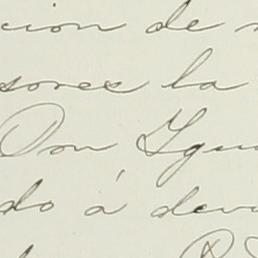 cion de
sores la
Don Ygna
do á devo